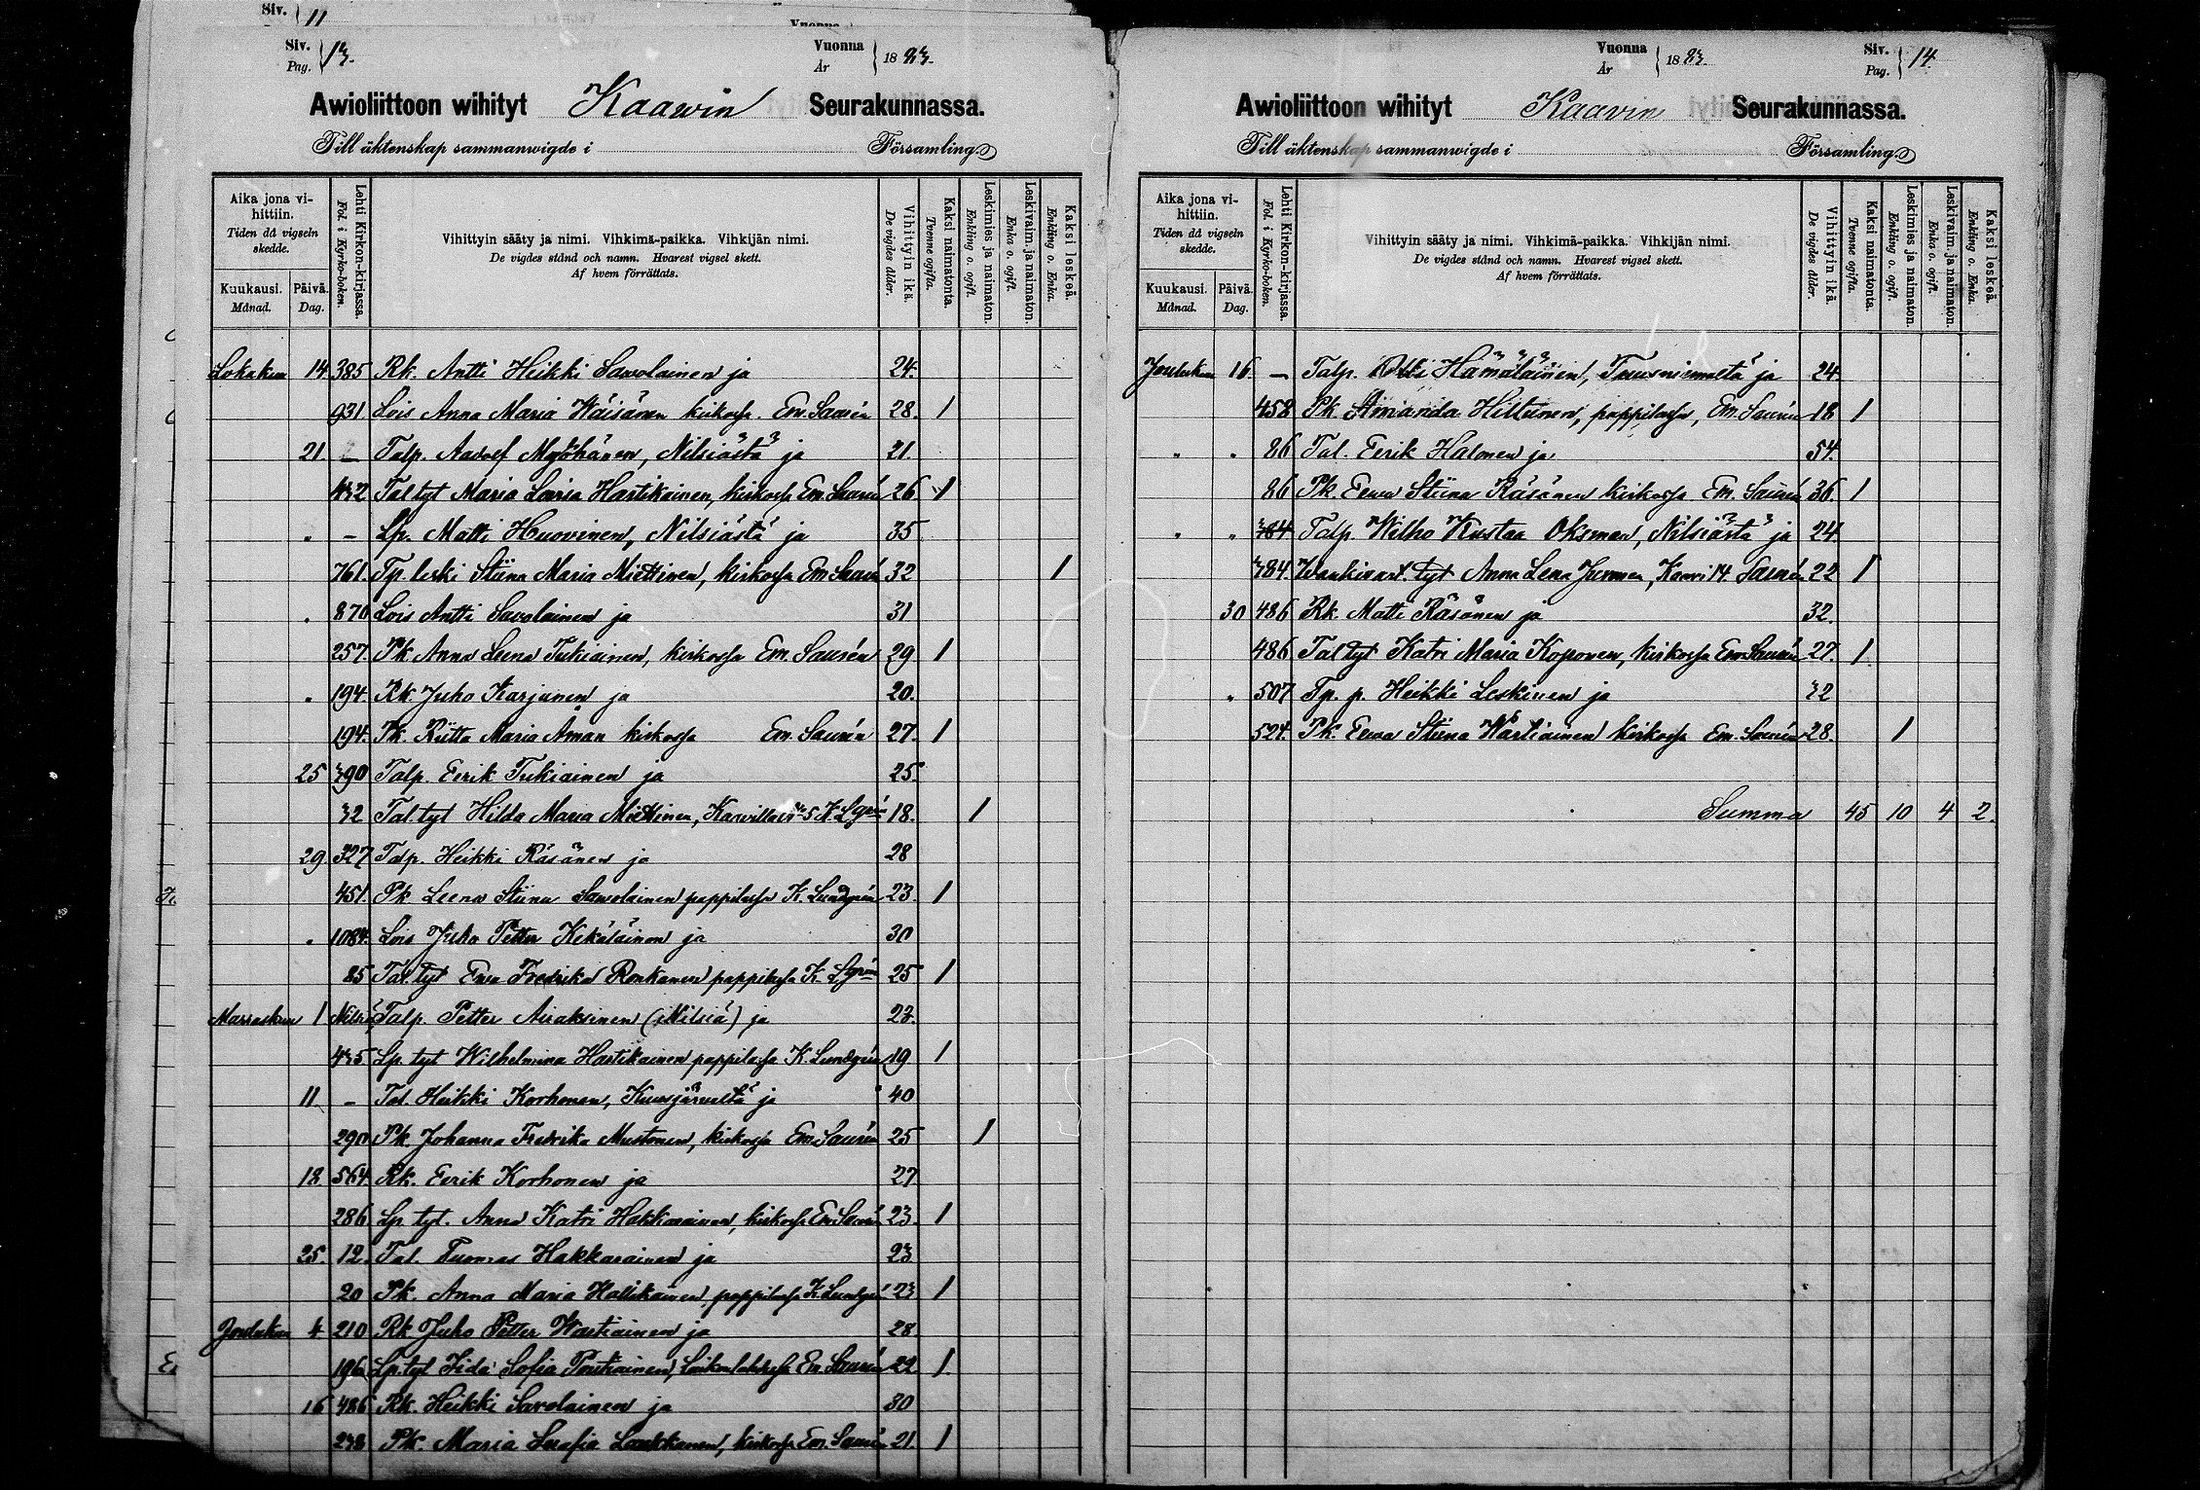 Siv. 11
Vuonna
Siv. Pag. 13.
Vuonna År 1883.
Awioliittoon wihityt Kaawin Seurakunnassa.
Till äktenskap sammanwigde i Församling
Aika jona vihittiin. Tiden då vigseln skedde.
Kuukausi. Månad.
Päivä. Dag.
Lehti Kirkon-kirjassa. Fol. i Kyrko-boken.
Vihittyin sääty ja nimi. Vihkimä-paikka. Vihkijän nimi.
De vigdes stånd och namn. Hvarest vigsel skett.
Af hvem förrättats.
Vihittyin ikä. De vigdes ålder.
Kaksi naimatonta. Tvenne ogifta.
Leskimies ja naimaton. Enkling o. ogift.
Leskivaim. ja naimaton. Enka o. ogift.
Kaksi leskeä. Enkling o. Enka.
Lokakuu 14 385 Rk. Antti Heikki Sawolainen ja 24.
931 Lois Anna Maria Wäisänen kirkossa. Em. Saurén 28. 1
21. – Talp. Aadolf Myöhänen, Nilsiästä ja 21.
432 Tal. tyt Maria Lovisa Hartikainen, kirkossa Em Saurén 26 1
" – Lp. Matti Huovinen, Nilsiästä ja 35
761. Tp. leski Stiina Maria Miettinen, kirkossa Em Saurén 32 1
" 876 Lois Antti Savolainen ja 31
257. Pk Anna Leena Tukiainen, kirkossa Em. Saurén 29 1
" 194. Rk. Juho Karjunen ja 20.
194. Pk. Riitta Maria Åman kirkossa Em. Saurén 27. 1
25 390 Talp. Eerik Tukiainen ja 25.
32 Tal. tyt Hilda Maria Miettinen, 5 K. Lgrén 18. 1
29 327 Talp. Heikki Räsänen ja 28
451. Pk Leena Stiina Sawolainen pappilassa K. Lundgrén 23. 1
" 1084. Lois Juho Petter Kekäläinen ja 30
85 Tal. tyt Ewa Fredrika Ronkanen pappilassa K. Lgrén 25 1
Marraskuu 1 Nilsiä Talp. Petter Airaksinen (Nilsiä) ja 23.
435 Lp. tyt Wilhelmina Hartikainen pappilassa K. Lundgrén 19 1
11 – Tal. Heikki Korhonen, Kuusjärveltä ja 40
290 Pk. Johanna Fredrika Mustonen, kirkossa Em. Saurén 25 1
18 564. Rk. Eerik Korhonen ja 27
286 Lp. tyt. Anna Katri Hakkarainen, kirkossa Em Saurén 23. 1
25. 12. Tal. Tuomas Hakkarainen ja 23
20 Pk. Anna Maria Hallikainen, pappilassa K. Lundgrén 23 1
Joulukuu 4 210 Rk Juho Petter Wartiainen ja 28
196 Lp. tyt Iida Sofia Poutiainen, Em. Saurén 22 1.
16 486 Rk. Heikki Savolainen ja 30
238 Pk. Maria Serafia Laukkanen, kirkossa Em. Saurén 21. 1
Vuonna År 1883.
Siv. Pag. 14
Awioliittoon wihityt Kaavin Seurakunnassa.
Till äktenskap sammanwigde i Församling
Aika jona vihittiin. Tiden då vigseln skedde.
Kuukausi. Månad.
Päivä. Dag.
Lehti Kirkon-kirjassa. Fol. i Kyrko-boken.
Vihittyin sääty ja nimi. Vihkimä-paikka. Vihkijän nimi.
De vigdes stånd och namn. Hvarest vigsel skett.
Af hvem förrättats.
Vihittyin ikä. De vigdes ålder.
Kaksi naimatonta. Tvenne ogifta.
Leskimies ja naimaton. Enkling o. ogift.
Leskivaim. ja naimaton. Enka o. ogift.
Kaksi leskeä. Enkling o. Enka.
Joulukuu 16. – Talp. Olli Hämäläinen, Tuusniemeltä ja 24.
458 Pk. Amanda Hiltunen, pappilassa, Em. Saurén 18 1
" " 86 Tal. Eerik Halonen ja 54.
86 Pk. Eewa Stiina Räsänen kirkossa Em. Saurén 36. 1
" " 784 Talp. Wilho Kustaa Oksman, Nilsiästä ja 24.
384. tyt Anna Lena Jumnen, Kaavi 14 Saurén 22 1
30 486 Rk. Matti Räsänen ja 32.
486 Tal tyt Katri Maria Koponen, kirkossa Em Saurén 27. 1
" 507 Tp. p. Heikki Leskinen ja 32
524. Pk. Eewa Stiina Wartiainen kirkossa Em. Saurén 28. 1
Summa 45 10 4 2.